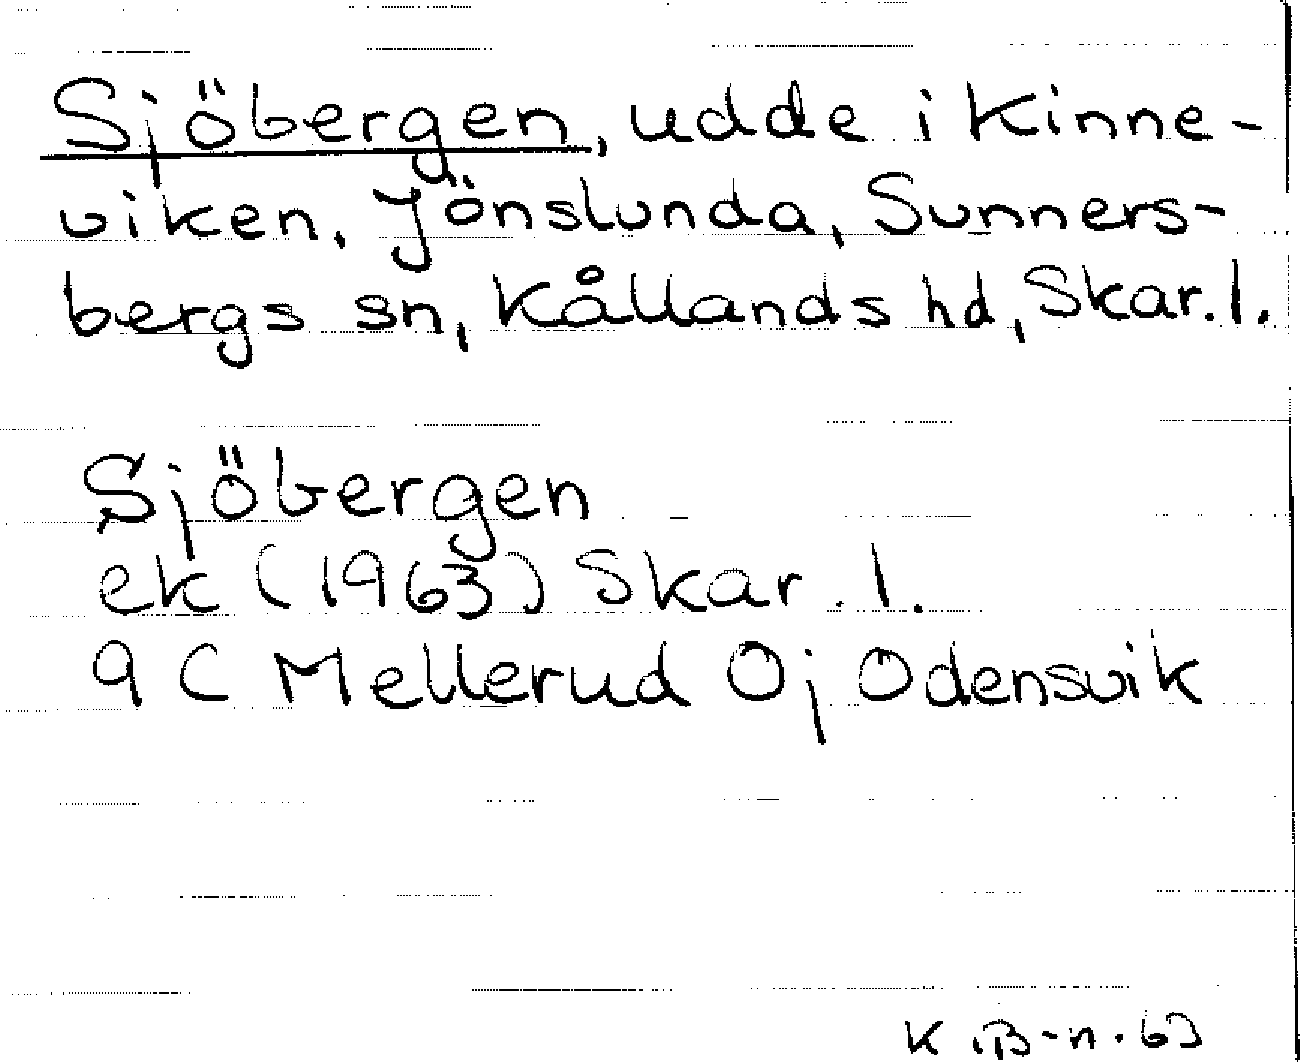 Sjöbergen, udde i Kinne-
viken, Jönslunda, Sunners-
bergs sn, Kållands hd, Skar. l.
Sjöbergen
ek (1963) Skar. l.
9 C Mellerud Oj Odensvik
K. B-n. 63